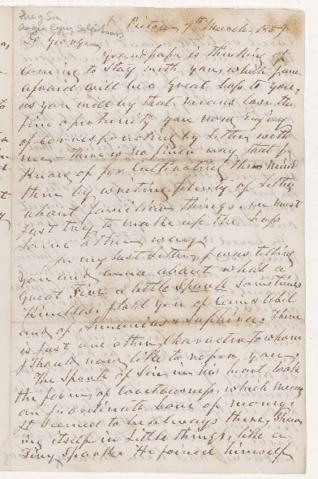 Pictou, 7th March, 1857
Dr George,
Grandpapa is thinking of
coming to stay with you, which I am
afraid will be a great loss to you,
as you will by that means lose the
fine opportunity you now enjoy
of corresponding by letter with
me. There is no finer way that I
know of for cultivating the mind
than by writing plenty of letters
about familiar things. We must
just try to make up the loss
some other way.
In my last letter, I was telling
you and about what a
great fire a little spark sometimes
kindles. I told you of
and of Ananias & Sapphira. There
is just one other character to whom
I should now like to refer you.
The spark of sin in his heart, took
the form of covetousness, which means
an inordinate love of money.
It seemed to be always there, show
ing itself in little things, like a
tiny spark. He joined himself